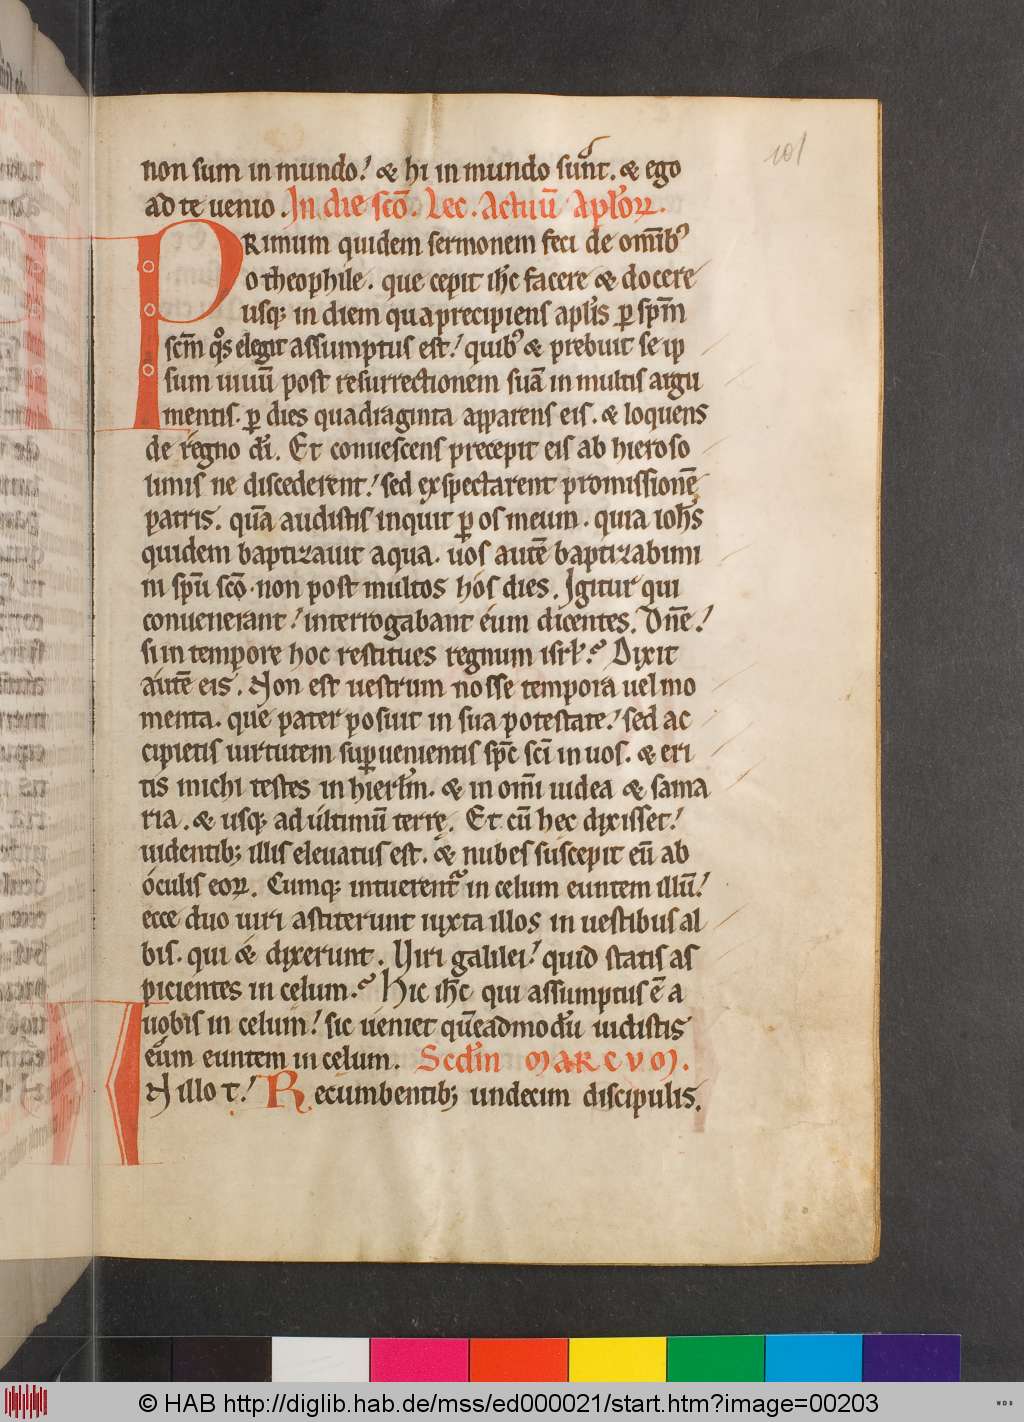 101
non sum in mundo! & hi in mundo sunt. & ego
ad te uenio. In die sc̄o. Lec. Actuū Aplo̕ꝝ.
PRimum quidem sermonem feci de om̄ibꝰ
o theophile. que cepit ih̄c facere & docere
usq; in diem qua precipiens apl̕is ꝑ sp̄m
sc̄m qͦs elegit assumptus est! quibꝰ & prebuit se ip
sum uiuū post resurrectionem suā in multis argu
mentis. ꝑ dies quadraginta apparens eis. & loquens
de regno dī. Et conuescens precepit eis ab hieroso
limis ne discederent! sed exspectarent promissionē
patris. quā audistis inquit ꝑ os meum. quia ioh̄s
quidem baptizauit aqua. uos autē baptizabimi
ni sp̄u sc̄o. non post multos hos dies. Igitur qui
conuenerant! interrogabant eum dicentes. Dn̄e!
si in tempore hoc restitues regnum isrl̕.? Dixit
autē eis. Non est uestrum nosse tempora uel mo
menta. que pater posuit in sua potestate! sed ac
cipietis uirtutem suꝑuenientis sp̄c sc̄i in uos. & eri
tis michi testes in hierl̄m. & in om̄i iudea & sama
ria. & usq; ad ultimū terrę. Et cū hec dixisset!
uidentib; illis eleuatus est. & nubes suscepit eū ab
oculis eoꝝ. Cumq; intuerent᷑ in celum euntem illū!
ecce duo uiri astiterunt iuxta illos in uestibus al
bis. qui & dixerunt. Uiri galilei! quid statis as
picientes in celum.? Hic ih̄c qui assumptus ē a
uobis in celum! sic ueniet quēadmodū uidistis
eum euntem in celum. Scd̕m MARCVM.
IN illo t! Recumbentib; undecim discipulis.
© HAB http://diglib.hab.de/mss/ed000021/start.htm?image=00203